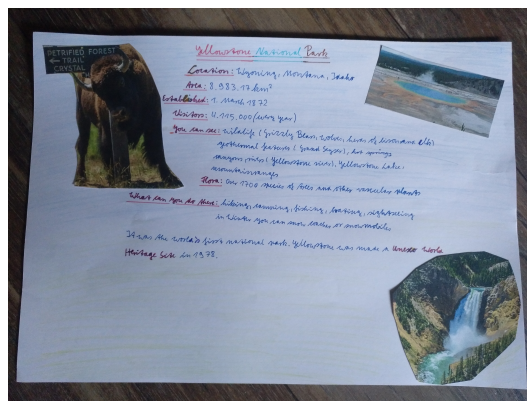 PETRIFIED FOREST
← TRAIL
CRYSTAL
Yellowstone National Park
Location: Wyoming, Montana, Idaho
Area: 8.983.17 km²
Established: 1. March 1872
Visitors: 4.115.000 (every year)
You can see: wildlife (Grizzly Bears, wolves, of and elk)
geothermal features (Geyser), hot springs
rivers (Yellowstone river), Yellowstone Lake
mountainranges
Flora: 1700 species of trees and other vascular plants
What can you do there: hiking, camping, fishing, boating, sightseeing
in Winter you can snow coaches or snowmobiles
It was the world's first national park. Yellowstone was made a Unesco World
Heritage Site in 1978.